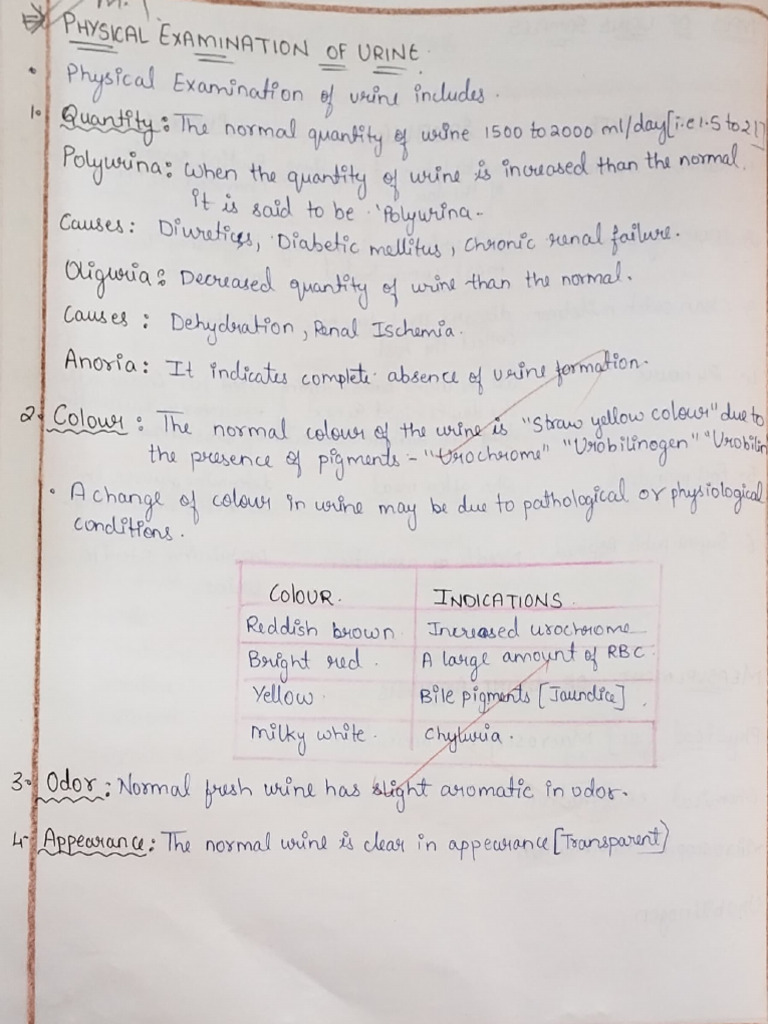 PHYSICAL EXAMINATION OF URINE.
• Physical Examination of urine includes.
1. Quantity: The normal quantity of urine 1500 to 2000 ml/day [i.e 1.5 to 2l]
Polyurina: when the quantity of urine is increased than the normal.
it is said to be 'Polyurina-
Causes: Diuretics, Diabetic mellitus, Chronic renal failure.
Oliguria: Decreased quantity of urine than the normal.
Causes: Dehydration, Renal Ischemia.
Anoria: It indicates complete absence of urine formation.
2. Colour: The normal colour of the urine is "Straw yellow colour" due to
the presence of pigments:- "Urochrome" "Urobilinogen" "Urobilin
• A change of colour in urine may be due to pathological or physiological
conditions.
COLOUR. INDICATIONS.
Reddish brown Increased urochrome
Bright red. A large amount of RBC
Yellow. Bile pigments [Jaundice].
Milky white. Chyluria.
3. Odor: Normal fresh urine has slight aromatic in odor.
4. Appearance: The normal urine is clear in appearance [Transparent]